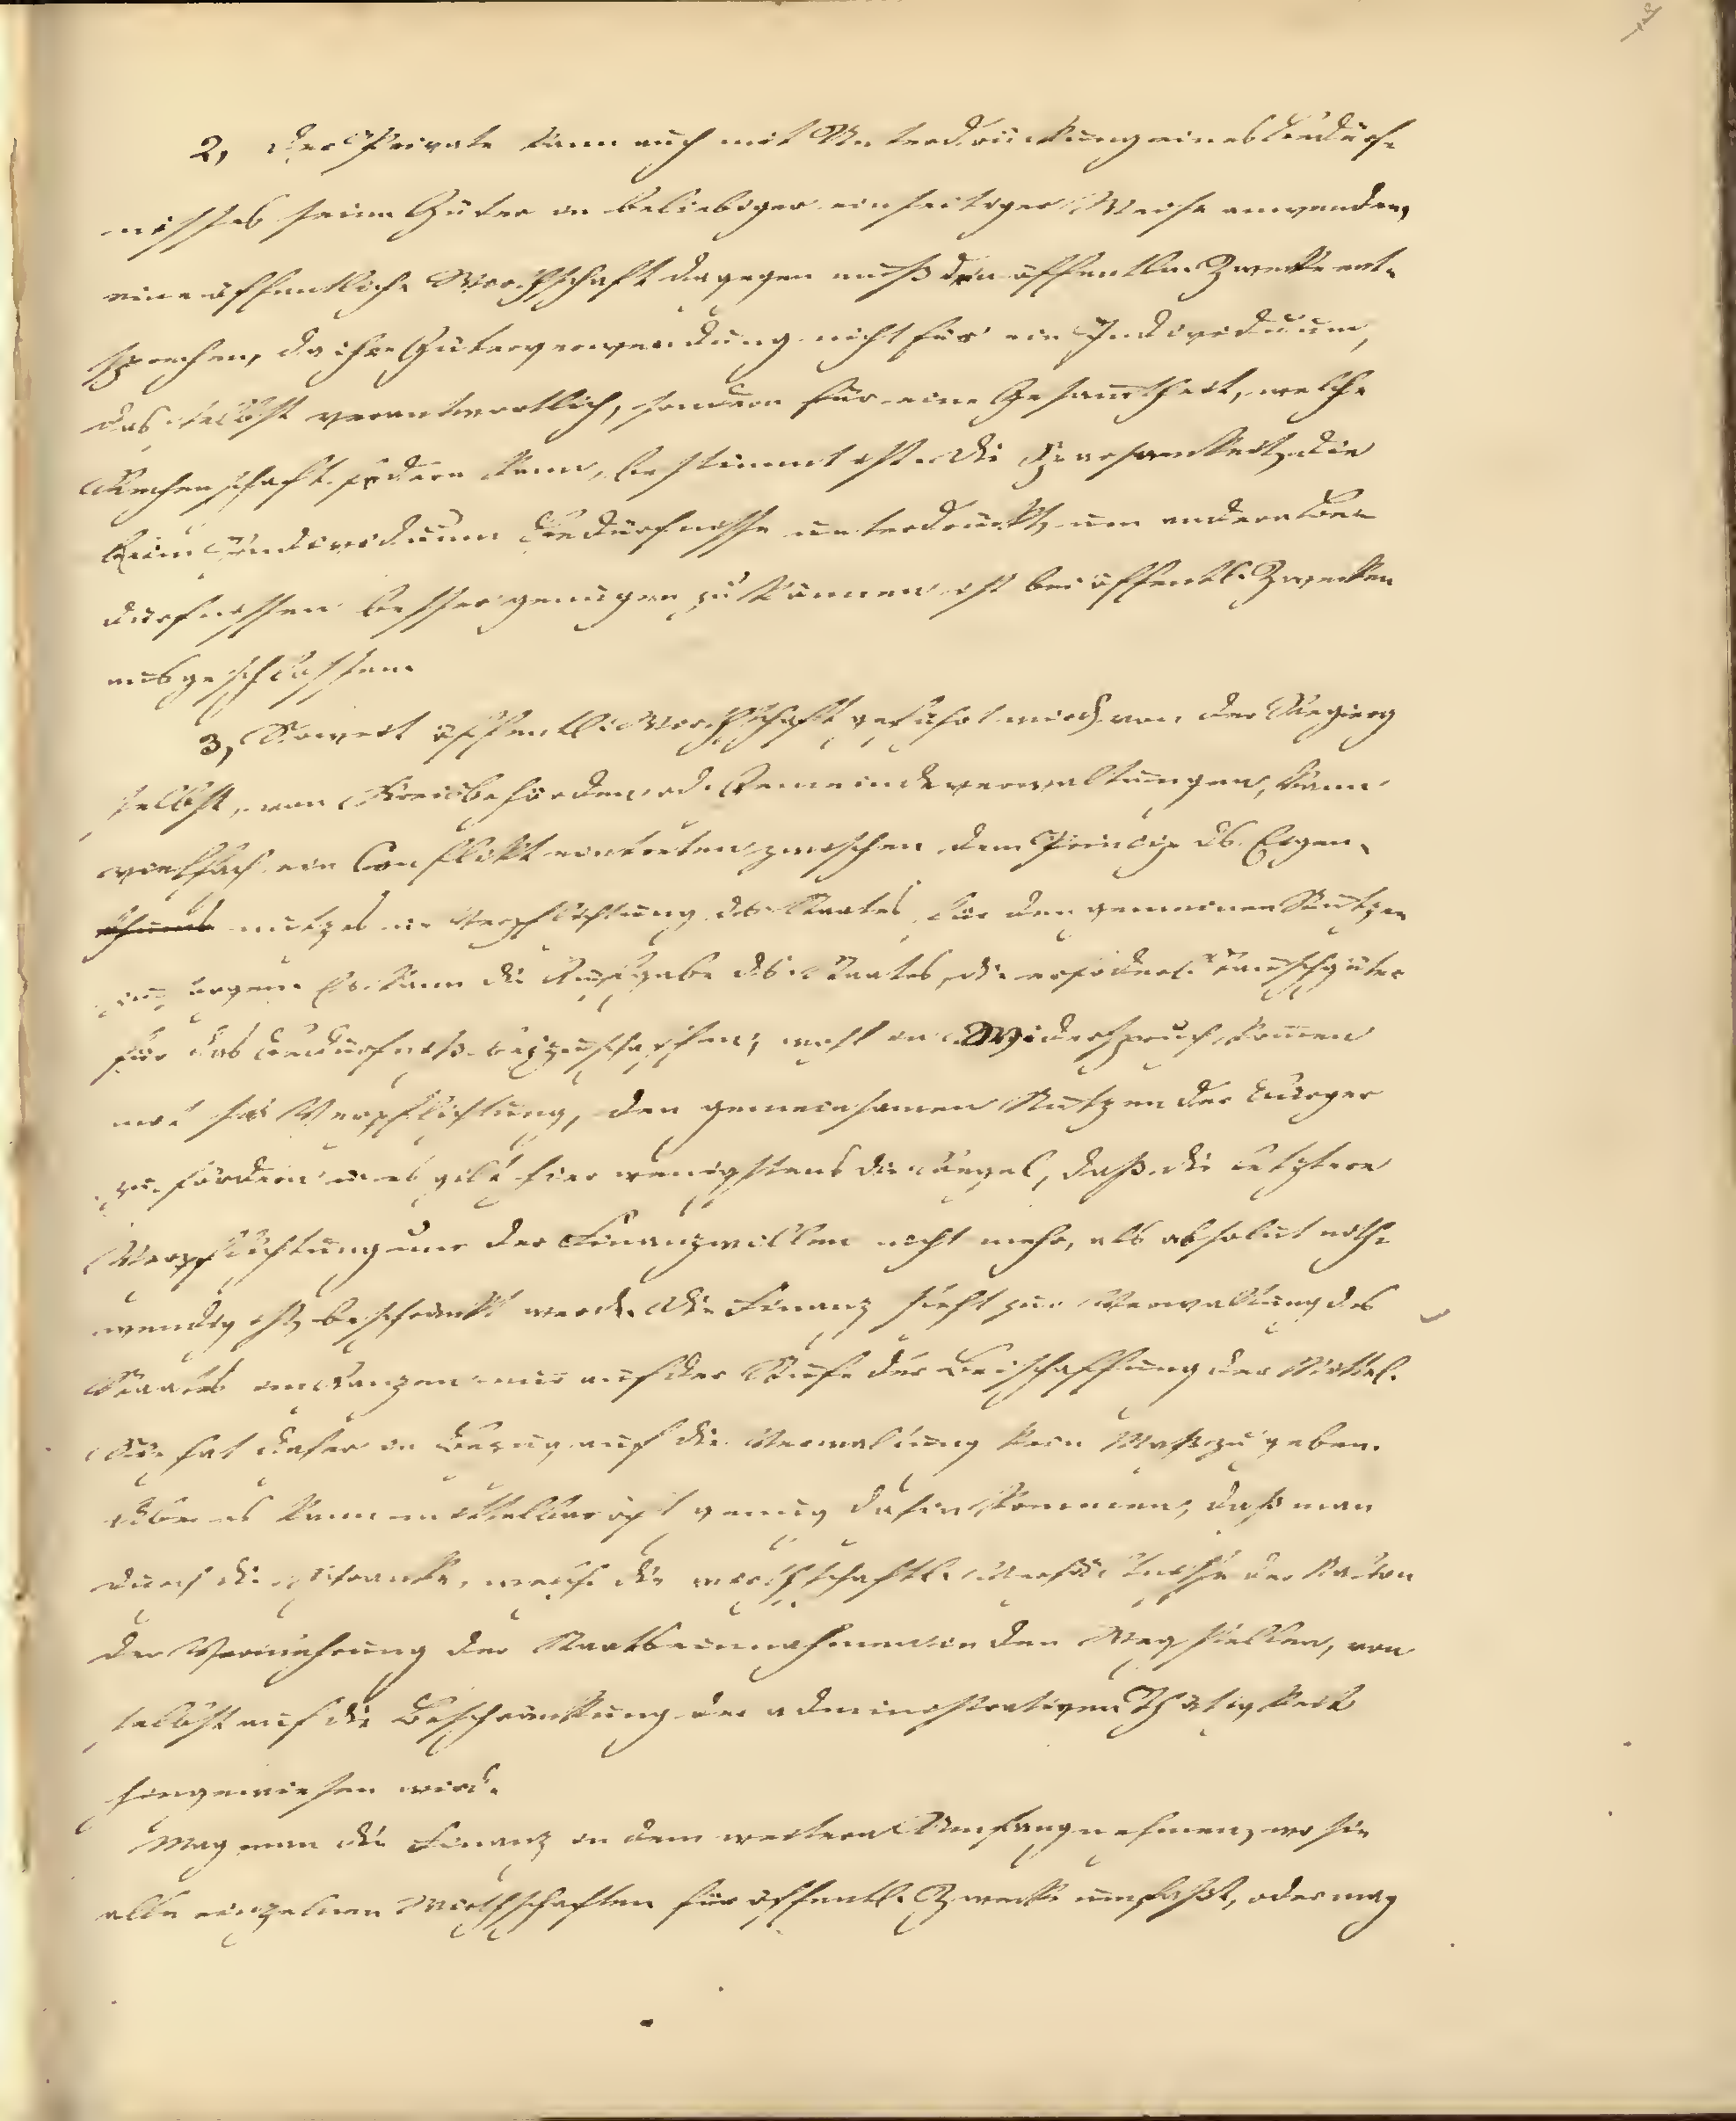 2, Der Private kann auch mit Unterdrückung eines Bedürf-
nisses seine Güter in beliebiger einseitiger Weise anwenden,
eine öffentliche Wirthschaft dagegen muß den öffentln Zwecke ent-
sprechen, da ihre Güterverwendung nicht für ein Individuum,
das selbst verantwortlich, sondern für eine Gesamtheit, welche
Rechenschaft fodern kann, bestimmt ist. Die Sparsamkeit, die
beim Individuum Bedürfnisse unterdrückt, um andern Be-
dürfnissen besser genügen zu können ist bei öffentl. Zwecken
ausgeschlossen.
3, Soweit öffentl. Wirthschaft geführt wird von der Regierg
selbst, von Kreisbehörden od. Gemeindeverwaltungen, kann
vielfach ein Conflikt eintreten zwischen dem Princip ds. Eigen-
thums nutzes u. Verpflichtung des Staates, für den gemeinen Nutzen
zu sorgen. Es kann die Aufgabe des Staates, die erforderl. Tauschgüter
für das Bedürfniß beizuschaffen, nicht in Widerspruch kommen
mit der Verpflichtung, den gemeinsamen Nutzen der Bürger
zu fördern u. es gilt hier wenigstens die Regel, daß die letztere
Verpflichtung um der Finanz willen nicht mehr, als absolut noth-
wendig ist, beschränkt werde. Die Finanz steht zur Verwaltung des
Staates im Ganzen nur auf der Stufe der Beischaffung der Mittel.
Sie hat daher in Bezug auf die Verwaltung kein Maß zu geben.
Aber es kann mittelbar oft genug dahin kommen, daß man
durch die Schranke, welche die wirthschaftl. Verhältnisse der Nation
der Vermehrung der Staatseinnahmen in den Weg stellen, von
selbst auf die Beschränkung der administrativen Thätigkeit
hingewiesen wird.
Mag man die Finanz in dem weitern Umfang nehmen, wo sie
alle einzelnen Wirthschaften für öffentl. Zwecke umfaßt, oder mag